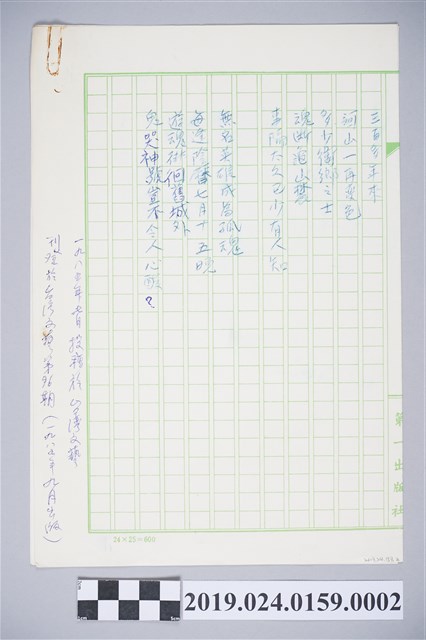 三百多年來
河山一再變色
多少衛鄉之士
魂斷這山巒
事隔太久已少有人知
無名英雄成為孤魂
每逢陰曆七月十五晚
遊魂徘徊舊城外
鬼哭神號豈不令人心酸？
一九八五年七月投稿於台灣文藝
刊登於台灣文藝第96期（一九八五年九月出版）
第一出版社
24×25=600
2019.024.0159.0002